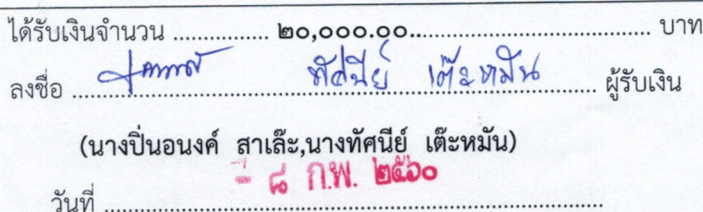 ได้รับเงินจำนวน ................. ๒๐,๐๐๐.๐๐.......................................... บาท
ลงชื่อ ........ ทัศนีย์ เต๊ะหมัน ........ ผู้รับเงิน
(นางปิ่นอนงค์ สาเล๊ะ,นางทัศนีย์ เต๊ะหมัน)
- ๘ ก.พ. ๒๕๖๐
วันที่ ...............................................................................